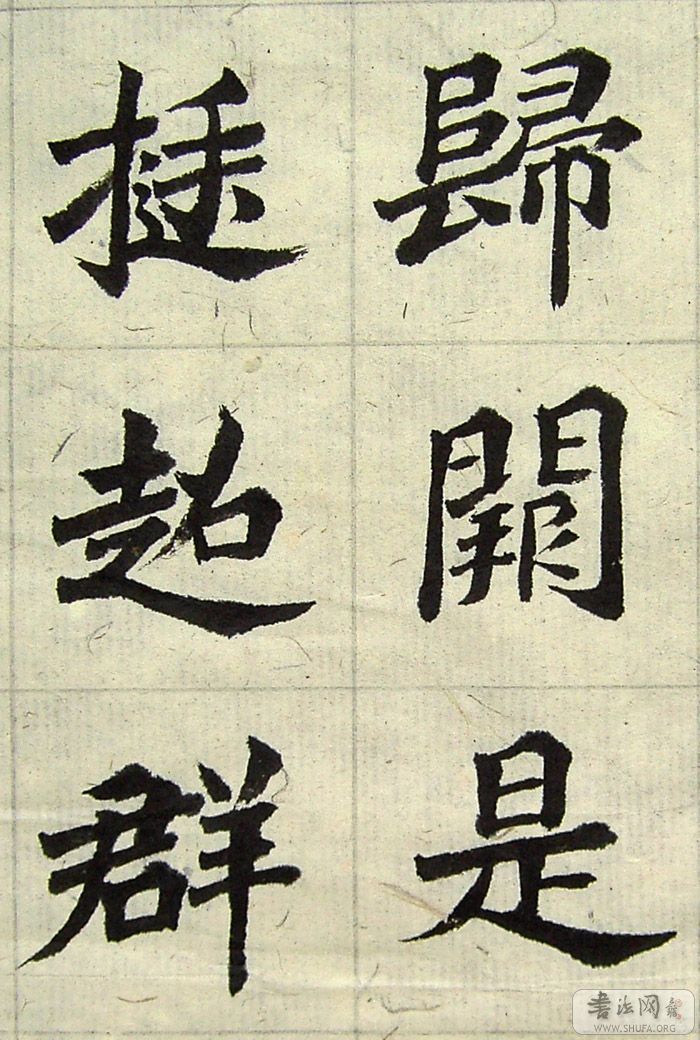 歸闕是
挺超群
書法网
WWW.SHUFA.ORG